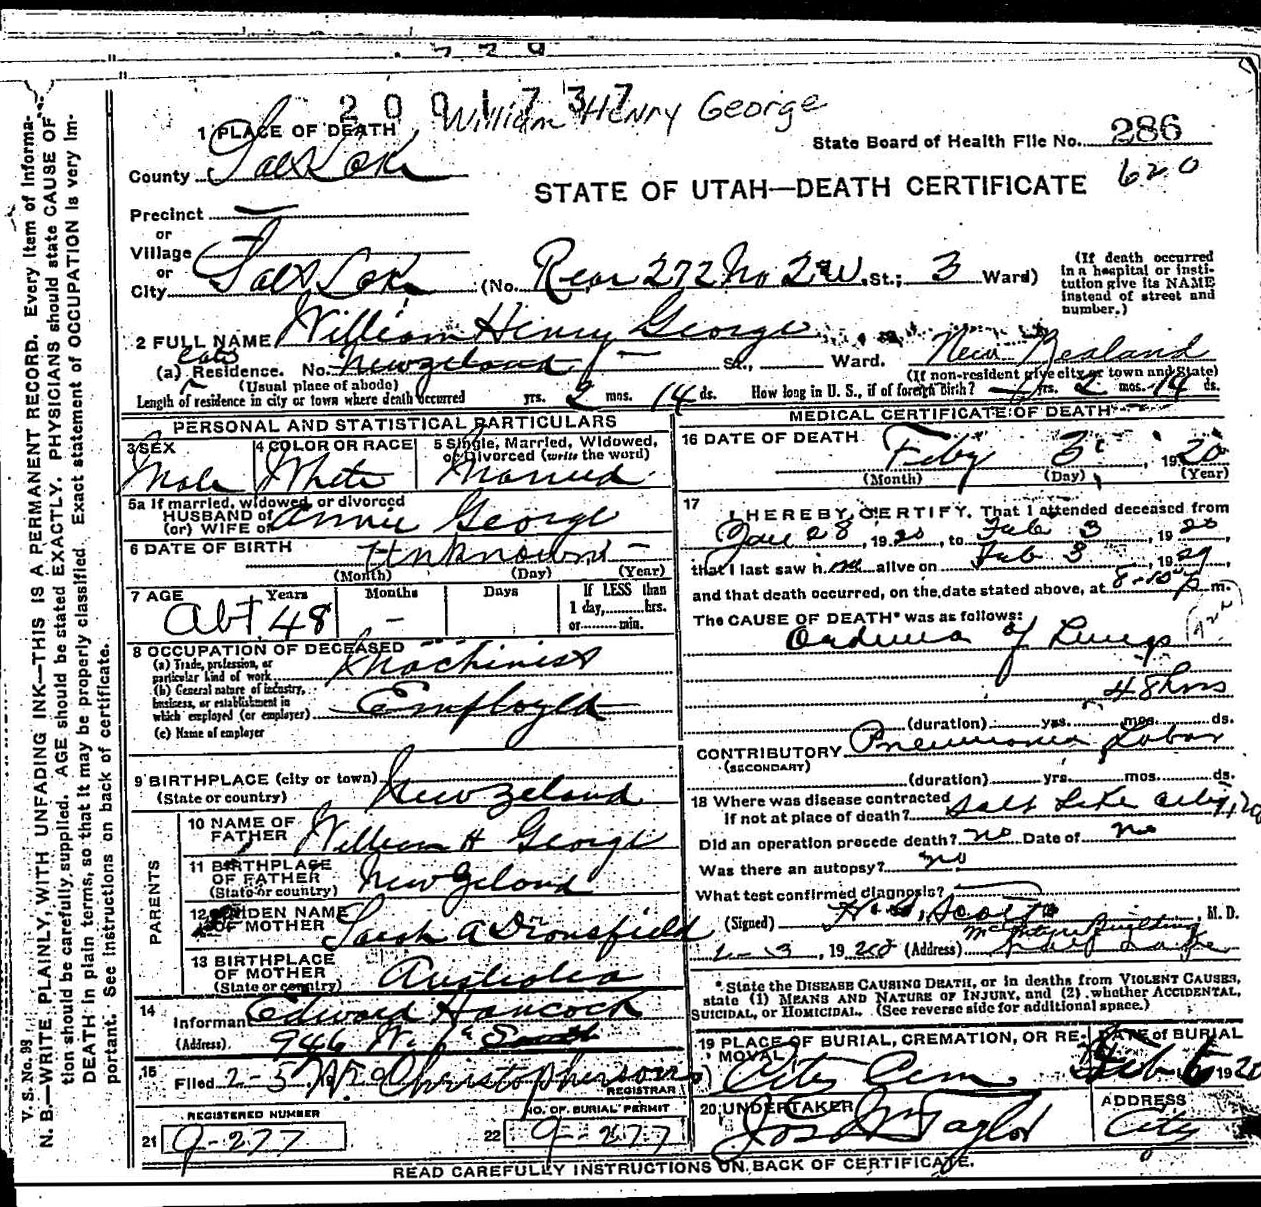 2001737 William Henry George
1 PLACE OF DEATH
State Board of Health File No. 286
County Salt Lake
STATE OF UTAH—DEATH CERTIFICATE 620
Precinct —
or
Village —
or
City Salt Lake (No. Rear 272 No 2nd W. St.; 3 Ward)
(If death occurred in a hospital or institution give its NAME instead of street and number.)
2 FULL NAME William Henry George
late
(a) Residence. No. Newzeland — St., Ward. New Zealand
(Usual place of abode) (If non-resident give city or town and State)
Length of residence in city or town where death occurred yrs. 2 mos. 14 ds. How long in U. S., if of foreign birth? — yrs. 2 mos. 14 ds.
PERSONAL AND STATISTICAL PARTICULARS
3 SEX
Male
4 COLOR OR RACE
White
5 Single, Married, Widowed, or Divorced (write the word)
Married
5a If married, widowed, or divorced
HUSBAND of
(or) WIFE of Annie George
6 DATE OF BIRTH Unknown —
(Month) (Day) (Year)
7 AGE Years Months Days If LESS than
1 day, hrs.
or min.
Abt 48 —
8 OCCUPATION OF DECEASED
(a) Trade, profession, or
particular kind of work Machinist
(b) General nature of industry,
business, or establishment in
which employed (or employer) Employed
(c) Name of employer
9 BIRTHPLACE (city or town)
(State or country) Newzeland
PARENTS
10 NAME OF
FATHER William H George
11 BIRTHPLACE
OF FATHER
(State or country) Newzeland
12 MAIDEN NAME
OF MOTHER Sarah A Dronsfield
13 BIRTHPLACE
OF MOTHER
(State or country) Australia
14 Informant Edward Hancock
(Address) 946 W.
15 Filed 2-5 Christopherson
REGISTRAR
REGISTERED NUMBER
21 9-277
NO. OF BURIAL PERMIT
22 9-277
MEDICAL CERTIFICATE OF DEATH
16 DATE OF DEATH Feby 3 , 1920
(Month) (Day) (Year)
17 I HEREBY CERTIFY, That I attended deceased from
Jan 28, 1920, to Feb 3, 1920
that I last saw him alive on Feb 3, 1920
and that death occurred, on the date stated above, at 8-10 p m.
The CAUSE OF DEATH* was as follows:
Oedema of Lungs
48 hrs
(duration) yrs. mos. ds.
CONTRIBUTORY Pneumonia Lobar
(SECONDARY)
(duration) yrs. mos. ds.
18 Where was disease contracted
if not at place of death? Salt Lake City
Did an operation precede death? no Date of no
Was there an autopsy? no
What test confirmed diagnosis?
(Signed) Scott, M. D.
2-3, 1920 (Address) McIntyre Building
Salt Lake
* State the DISEASE CAUSING DEATH, or in deaths from VIOLENT CAUSES,
state (1) MEANS AND NATURE OF INJURY, and (2) whether ACCIDENTAL,
SUICIDAL, or HOMICIDAL. (See reverse side for additional space.)
19 PLACE OF BURIAL, CREMATION, OR REMOVAL
City Cem
DATE of BURIAL
Feb 6 1920
20 UNDERTAKER
Jos Wm Taylor
ADDRESS
City
READ CAREFULLY INSTRUCTIONS ON BACK OF CERTIFICATE.
V. S. No. 98
N. B.—WRITE PLAINLY, WITH UNFADING INK—THIS IS A PERMANENT RECORD. Every item of information should be carefully supplied. AGE should be stated EXACTLY. PHYSICIANS should state CAUSE OF DEATH in plain terms, so that it may be properly classified. Exact statement of OCCUPATION is very important. See instructions on back of certificate.